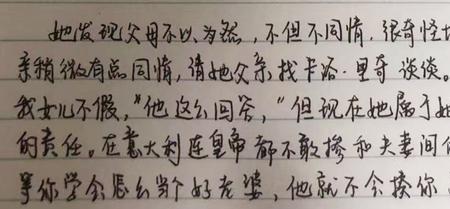 她发现父母不以为然，不但不同情，很奇怪
亲稍微有点同情，请她父亲找卡洛·里奇谈谈。
我女儿不假，"他这么回答，"但现在她属于她
的责任。在意大利连皇帝都不敢掺和夫妻间
等你学会怎么当个好老婆，他就不会揍你